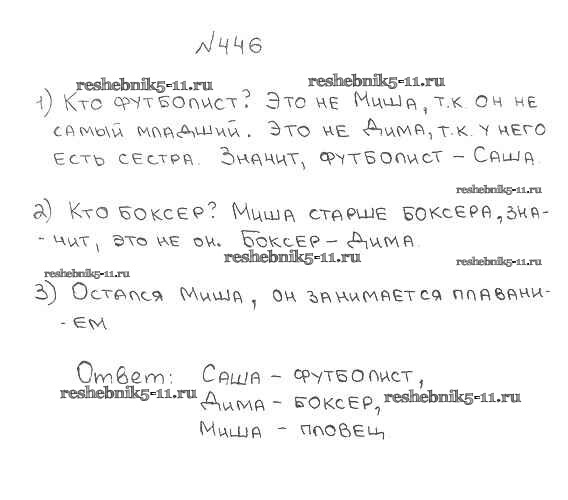 №446
reshebnik5-11.ru reshebnik5-11.ru
1) Кто футболист? Это не Миша, т.к. он не
самый младший. Это не Дима, т.к. у него
есть сестра. Значит, футболист – Саша.
reshebnik5-11.ru
2) Кто боксер? Миша старше боксера, зна-
- чит, это не он. Боксер – Дима.
reshebnik5-11.ru reshebnik5-11.ru
reshebnik5-11.ru
3) Остался Миша, он занимается плавани-
- ем
Ответ: Саша – футболист,
reshebnik5-11.ru Дима – боксер, reshebnik5-11.ru
Миша – пловец